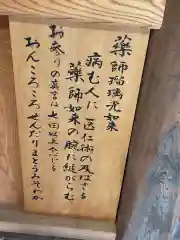 薬師瑠璃光如来
病む人に 医仁術の及ばざる
薬師如来の腕に縋がらむ
お参りの真言は七回以上念じる
おんころころせんだりまとうぎそわか